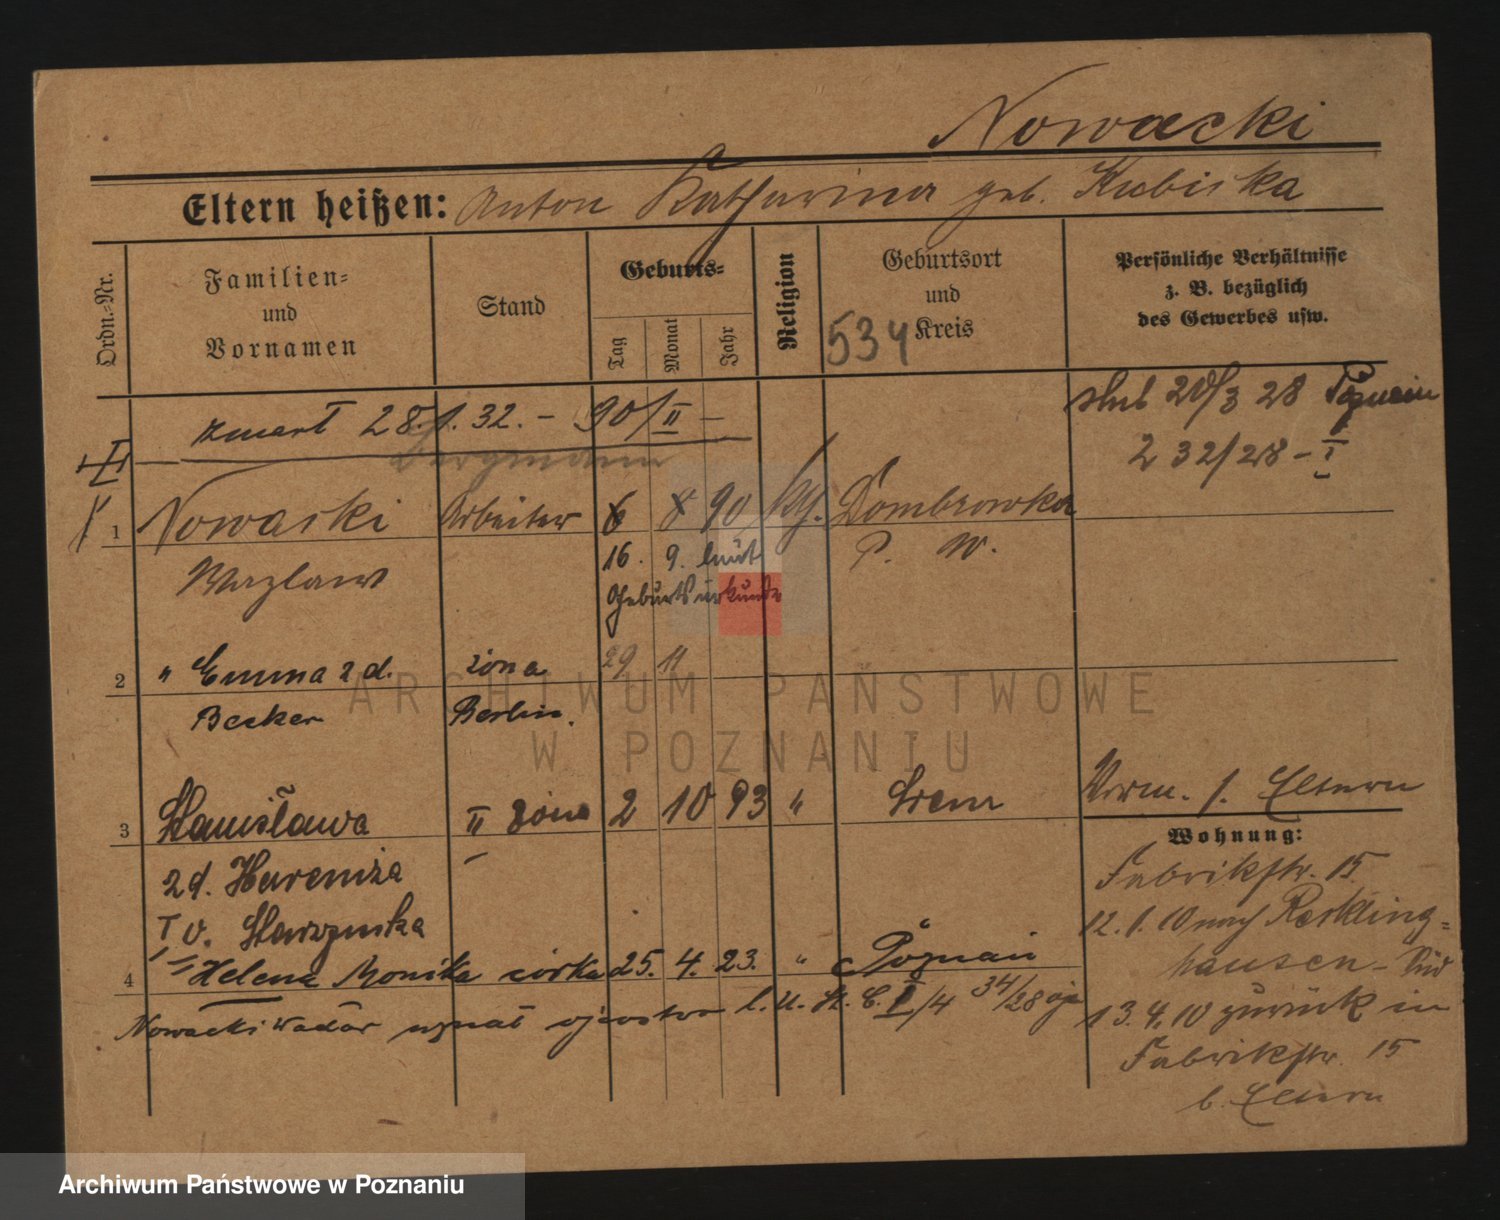 Nowacki
Eltern heißen: Anton Katharina geb. Kubiska
Ordn.-Nr.
Familien-
und
Vornamen
Stand
Geburts-
Tag
Monat
Jahr
Religion
Geburtsort
und
Kreis
534
Persönliche Verhältnisse
z. B. bezüglich
des Gewerbes usw.
zmarł 28.1.32. – 90/II –
ślub 20/3 28 Poznań
232/28 – I
Bergmann
1 Nowacki Arbeiter 6 8 90 kth. Dombrowka
Wazlaw 16. 9. laut P. W.
Geburtsurkunde
2 " Emma z d. żona 29 11
Becker Berlin.
3 Stanisława II żona 2 10 93 " Śrem
z d.
I v.
4 Helena Monika córka 25. 4. 23. " Poznań
Nowacki Wacław uznał ojcostwo l. U. St. C. I/4 34/28
Verm. s. Eltern
Wohnung:
Fabrikstr. 15
12. 1. 10 nach Reckling-
hausen – Süd
13. 4. 10 zurück in
Fabrikstr. 15
b. Eltern
ARCHIWUM PAŃSTWOWE
W POZNANIU
Archiwum Państwowe w Poznaniu